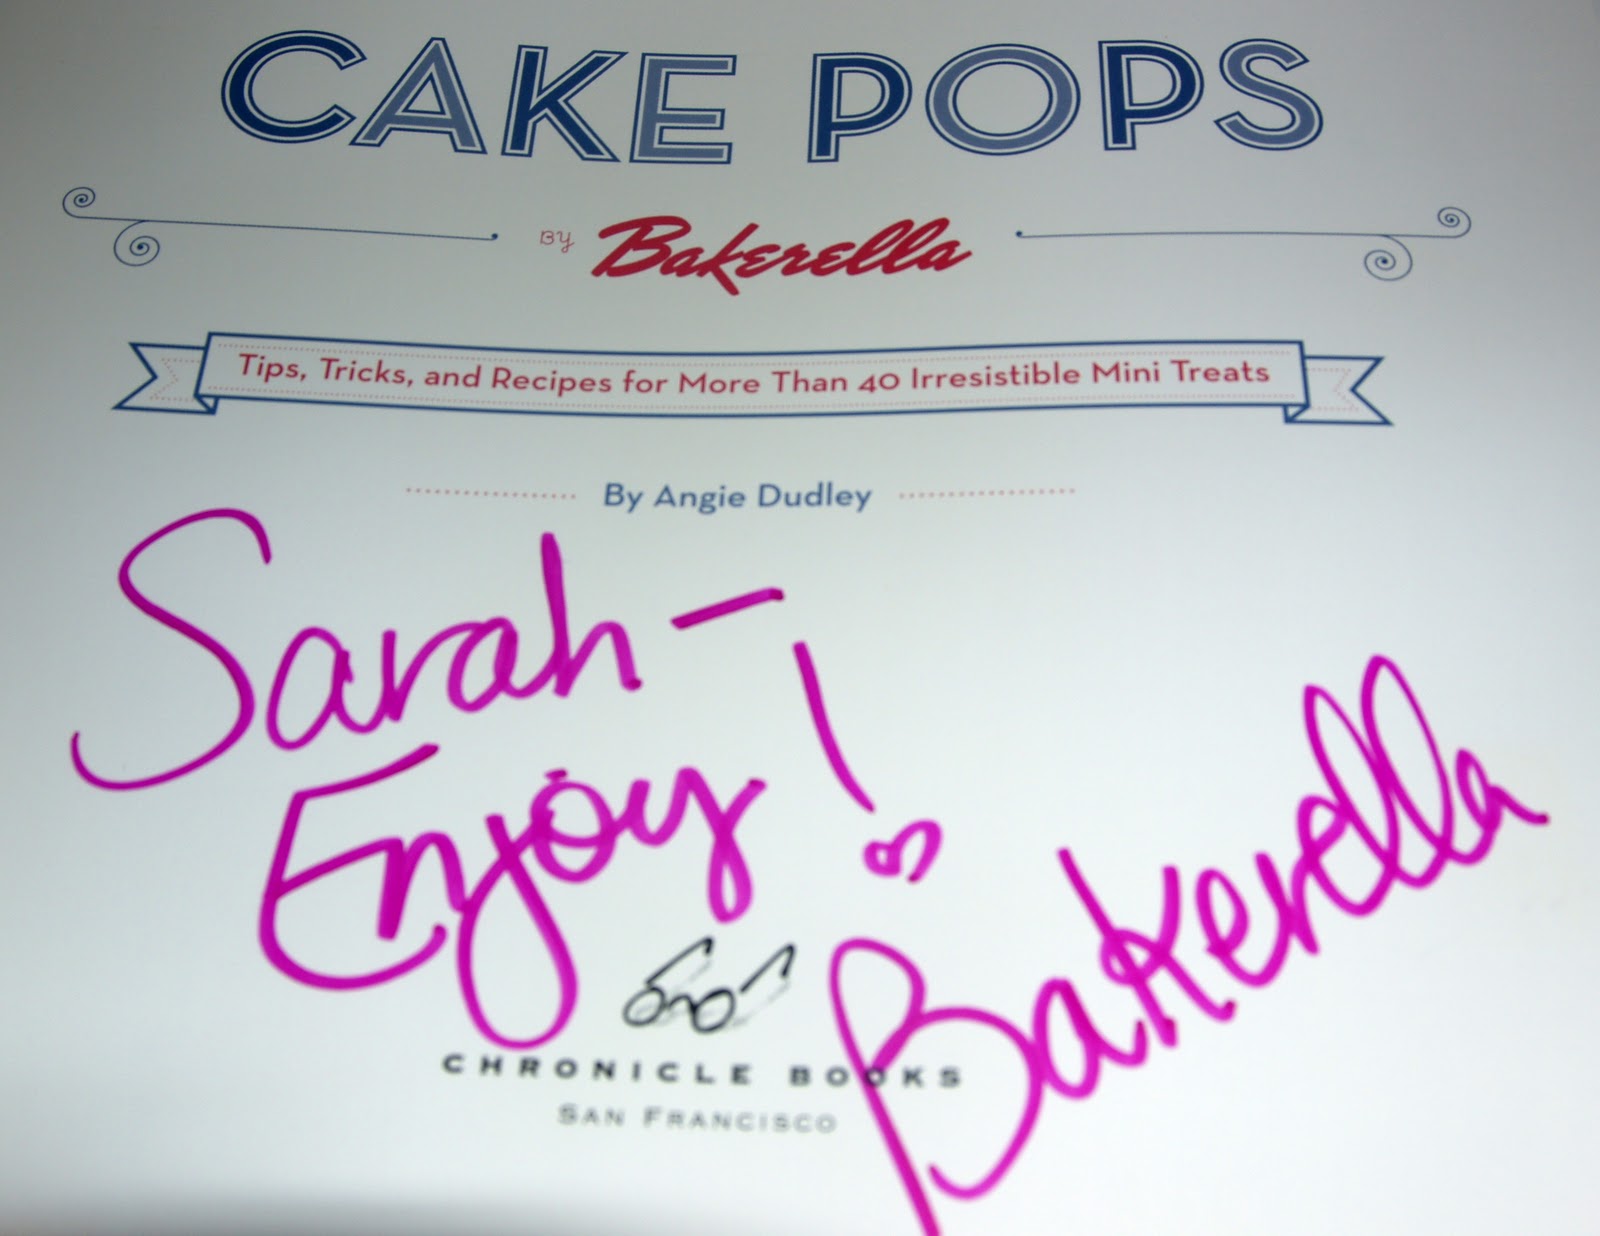 CAKE POPS
BY Bakerella
Tips, Tricks, and Recipes for More Than 40 Irresistible Mini Treats
By Angie Dudley
Sarah-
Enjoy!
Bakerella
CHRONICLE BOOKS
SAN FRANCISCO